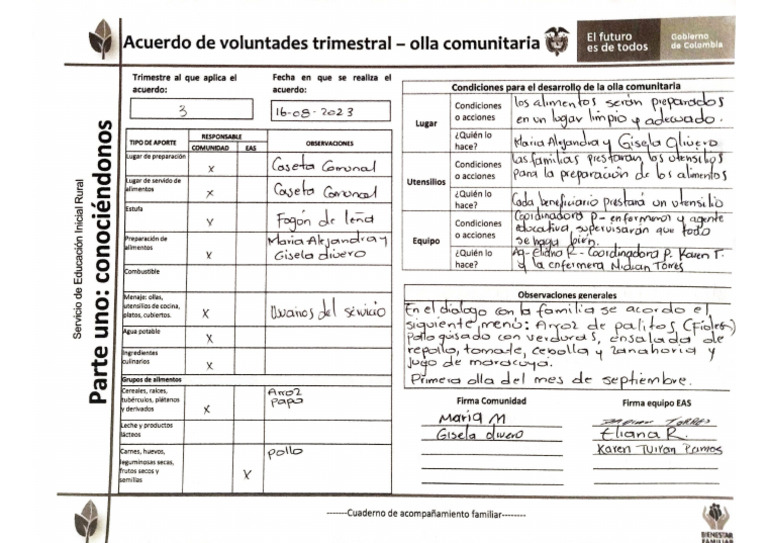 Acuerdo de voluntades trimestral – olla comunitaria
El futuro
es de todos
Gobierno
de Colombia
Servicio de Educación Inicial Rural
Parte uno: conociéndonos
Trimestre al que aplica el
acuerdo:
3
Fecha en que se realiza el
acuerdo:
16-08-2023
TIPO DE APORTE
RESPONSABLE
COMUNIDAD EAS
OBSERVACIONES
Lugar de preparación
x
Caseta Comunal
Lugar de servido de
alimentos
x
Caseta Comunal
Estufa
x
Fogón de leña
Preparación de
alimentos
x
Maria Alejandra y
Gisela olivero
Combustible
Menaje: ollas,
utensilios de cocina,
platos, cubiertos.
x
Usuarios del servicio
Agua potable
x
Ingredientes
culinarios
x
Grupos de alimentos
Cereales, raíces,
tubérculos, plátanos
y derivados
x
Arroz
papa
Leche y productos
lácteos
Carnes, huevos,
leguminosas secas,
frutos secos y
semillas
x
pollo
Condiciones para el desarrollo de la olla comunitaria
Lugar
Condiciones
o acciones
los alimentos serán preparados
en un lugar limpio y adecuado.
¿Quién lo
hace?
Maria Alejandra y Gisela Olivero
Utensilios
Condiciones
o acciones
las familias prestaran los utensilios
para la preparación de los alimentos
¿Quién lo
hace?
Cada beneficiario prestará un utensilio
Equipo
Condiciones
o acciones
Coordinadora P- enfermera y agente
educativa, supervisarán que todo
se haga bien.
¿Quién lo
hace?
Ag- Eliana R- Coordinadora P. Karen T.
y la enfermera Torres
Observaciones generales
En el dialogo con la familia se acordo el
siguiente menú: Arroz de palitos (Fideos)
pollo guisado con verduras, ensalada de
repollo, tomate, cebolla y zanahoria y
jugo de maracuya.
Primera olla del mes de septiembre.
Firma Comunidad
Maria M
Gisela olivero
Firma equipo EAS
TORRES
Eliana R.
Karen Tuiran Ramos
------Cuaderno de acompañamiento familiar--------
BIENESTAR
FAMILIAR